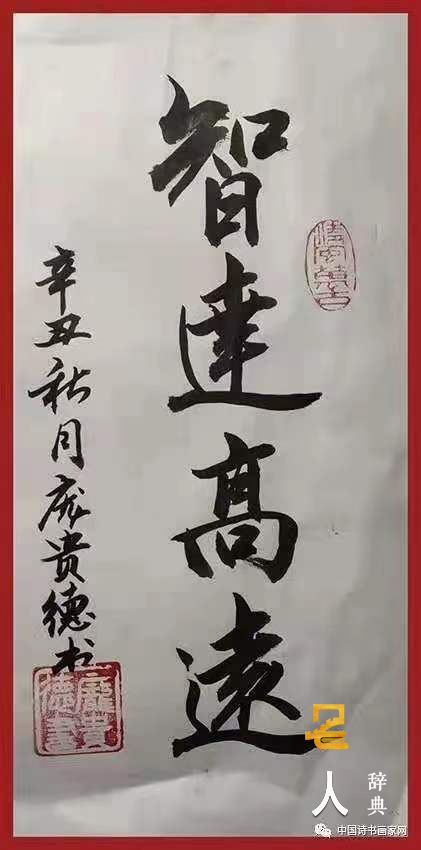 智達高遠
辛丑秋月庞贵德书
龐貴德書
名人辞典
中国诗书画家网